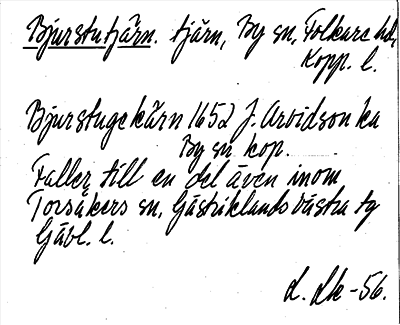 Bjurstutjärn. tjärn, By sn, Folkare hd,
Kopp. l.
Bjurstugekärn 1652 J. Arvidson ka
By sn kop.
Faller till en del även inom
Torsåkers sn, Gästriklands västra tg
Gävl. l.
L. Lk -56.